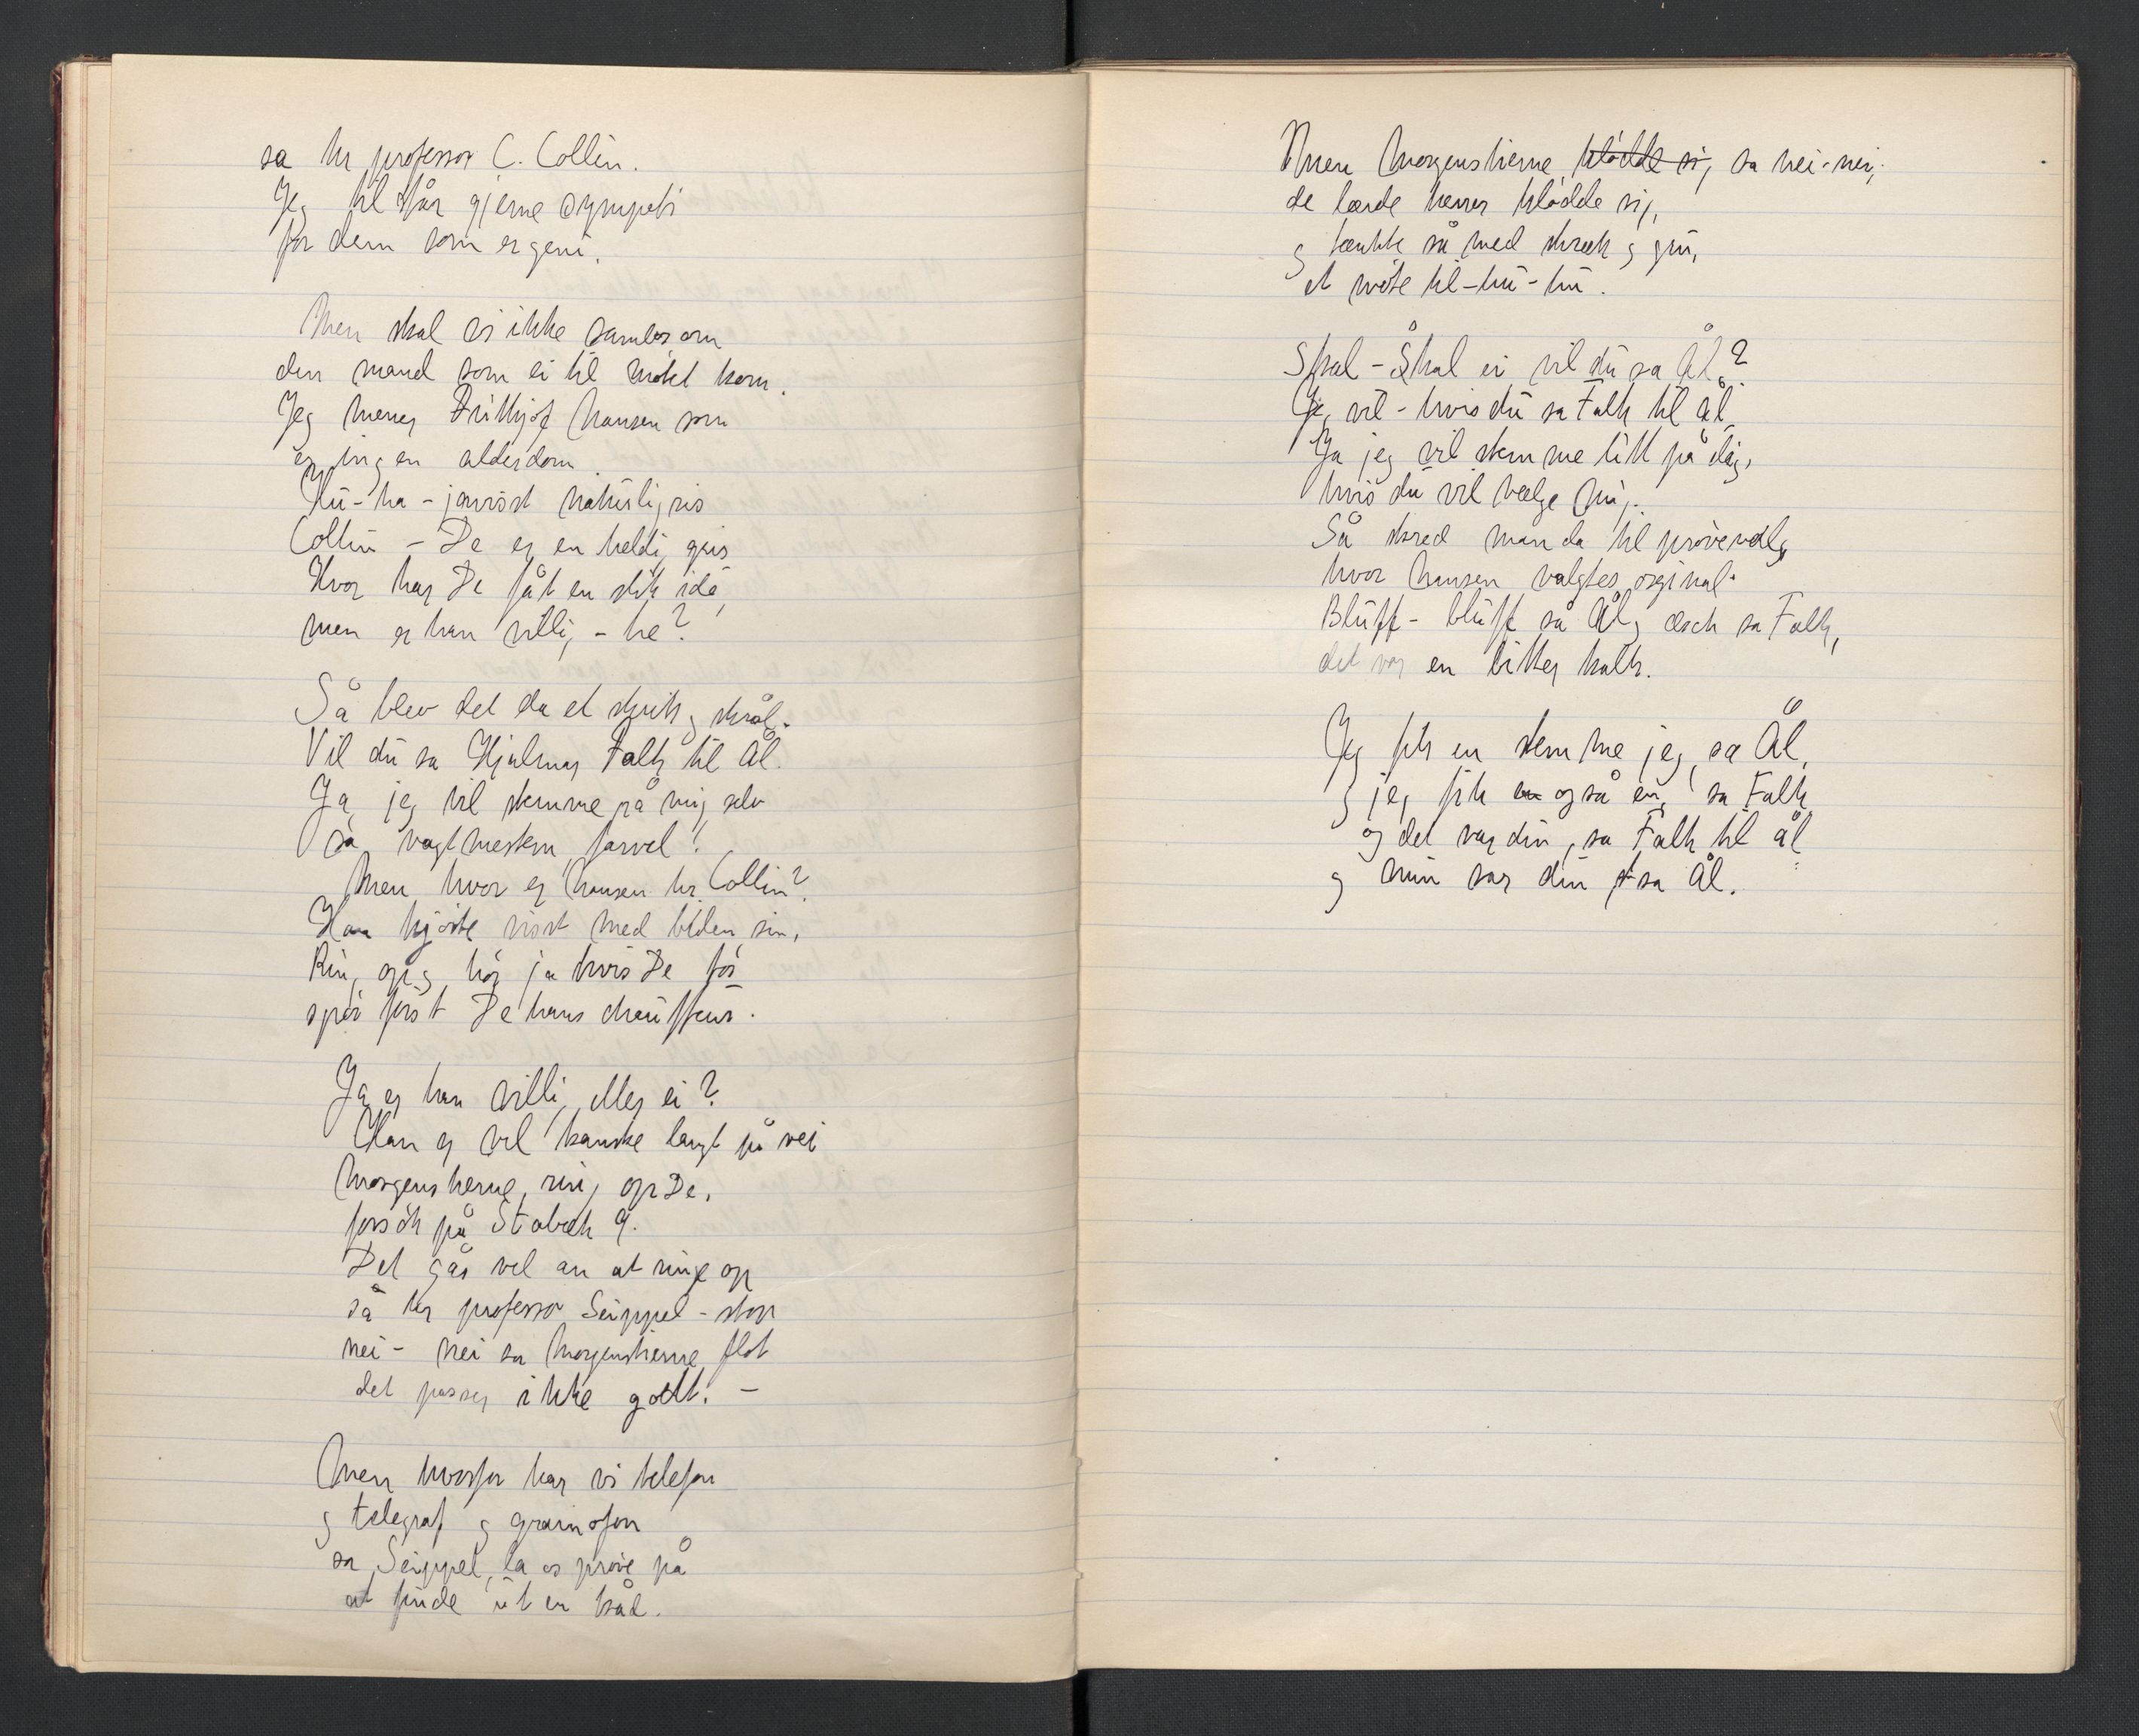 sa hr professor C. Collin.
Jeg får gjerne sympati
for dem som er geni.
Men skal vi ikke samles om
den mand som ei til møtet kom.
Jeg mener Fritthjof Nansen som
er ingen alderdom.
Hu-ha - javisst naturligvis
Collin - De er en heldig gris
Hvor har De fåt en slik idé,
men er han villig - he?
Så blev det da et skrik og skrål.
Vil du sa Hjalmar Falk til Ål.
Ja, jeg vil stemme på mig selv
sa vagtmesteren, farvel!
Men hvor er Nansen hr. Collin?
Han kjørte visst med bilen sin,
Ring op og hør ja hvis De tør
spør først De hans chauffeur.
Ja er han villig eller ei?
Han er vel kanske langt på vei
Morgenstierne, ring op De,
forsøk på Stabæk 9.
Det går vel an at ringe op
sa hr professor Seippel - stop
nei - nei sa Morgenstierne flot
det passer ikke godt. -
Men hvorfor har vi telefon
og telegraf og gramofon
sa Seippel, la os prøve på
at finde ut en tråd.
Men Morgenstierne klødde sig sa nei-nei,
de lærde herrer klødde sig,
og tænkte så med skræk og gru,
et møte til - hu - hu.
Skal - Skal ei vil du sa Ål?
Jeg vil - hvis du sa Falk til Ål
Ja jeg vil stemme litt på dig,
hvis du vil vælge mig.
Så skred man da til prøvevalg
hvor Nansen valgtes orginal.
Bluff - bluff sa Ål og æsch sa Falk,
det var en bitter kalk.
Jeg fik en stemme jeg, sa Ål,
og jeg fik en også en, sa Falk
og det var din, sa Falk til Ål
og min var din sa Ål.